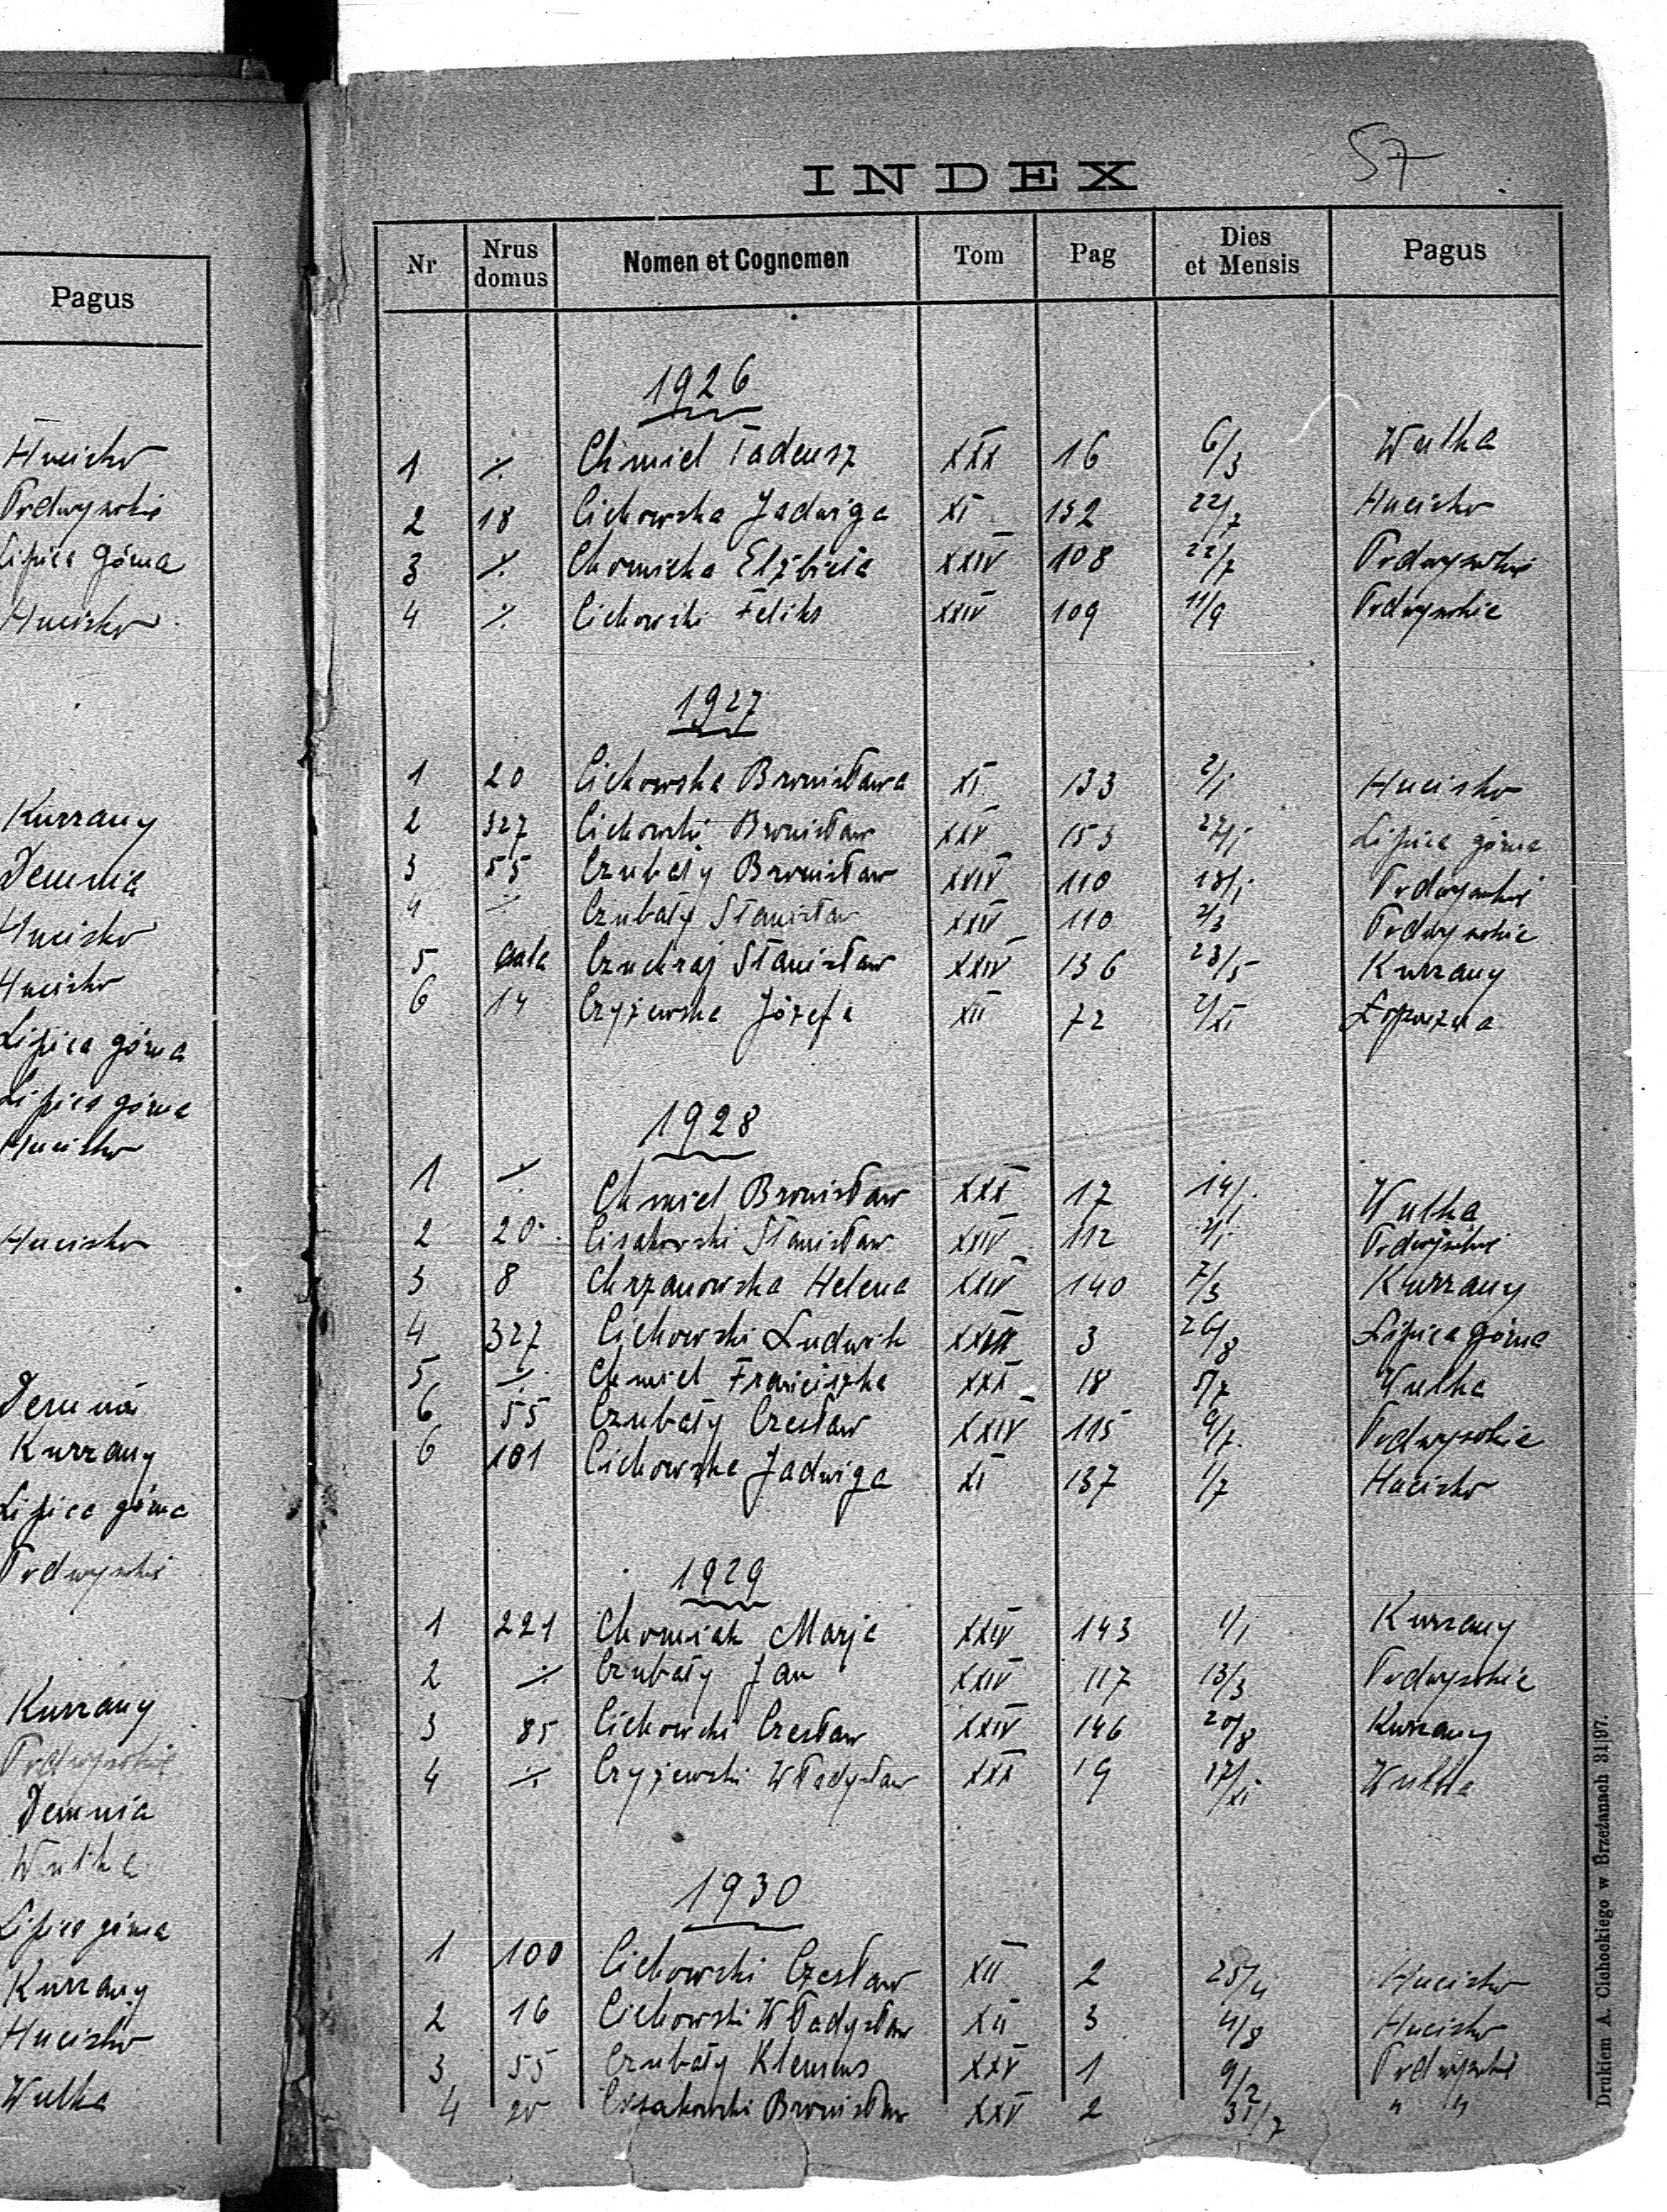 Pagus
Hucisko
Podwysokie
Lipica górna
Hucisko
Kurzany
Demnia
Hucisko
Hucisko
Lipica górna
Lipica górna
Hucisko
Hucisko
Demnia
Kurzany
Lipica górna
Podwysokie
Kurzany
Podwysokie
Demnia
Wulka
Lipica górna
Kurzany
Hucisko
Wulka
57
INDEX
Nr Nrus domus Nomen et Cognomen Tom Pag Dies et Mensis Pagus
1926
1 % Chmiel Tadeusz XXX 16 6/3 Wulka
2 18 Cichowska Jadwiga XI 132 22/7 Hucisko
3 % Chomicka Elżbieta XXIV 108 22/7 Podwysokie
4 % Cichowski Feliks XXIV 109 11/9 Podwysokie
1927
1 20 Cichowska Bronisława XI 133 2/1 Hucisko
2 327 Cichowski Bronisław XXV 153 27/1 Lipica górna
3 55 Czubaty Bronisław XXIV 110 18/1 Podwysokie
4 % Czubaty Stanisław XXIV 110 2/3 Podwysokie
5 Czuchraj Stanisław XXIV 136 23/5 Kurzany
6 14 Czyżewska Józefa XII 72 2/XI Łopuszna
1928
1 % Chmiel Bronisław XXX 17 14/1 Wulka
2 20 Cisakowski Stanisław XXIV 112 Podwysokie
3 8 Chrzanowska Helena XXIV 140 7/3 Kurzany
4 327 Cichowski Ludwik 3 26/8 Lipica górna
5 % Chmiel Franciszka XXX 18 5/7 Wulka
6 55 Czubaty Czesław XXIV 115 9/7 Podwysokie
6 101 Cichowska Jadwiga XI 137 1/7 Hucisko
1929
1 221 Chomiak Marja XXIV 143 1/1 Kurzany
2 % Czubaty Jan XXIV 117 13/3 Podwysokie
3 85 Cichowski Czesław XXIV 146 20/8 Kurzany
4 % Czyżewski Władysław XXX 19 17/XI Wulka
1930
1 100 Cichowski Czesław XII 2 25/4 Hucisko
2 16 Cichowski Władysław XII 3 4/8 Hucisko
3 55 Czubaty Klemens XXV 1 9/2 Podwysokie
4 20 Cisakowski Bronisław XXV 2 31/7 " "
Drukiem A. Cichockiego w Brzeżanach 31|97.